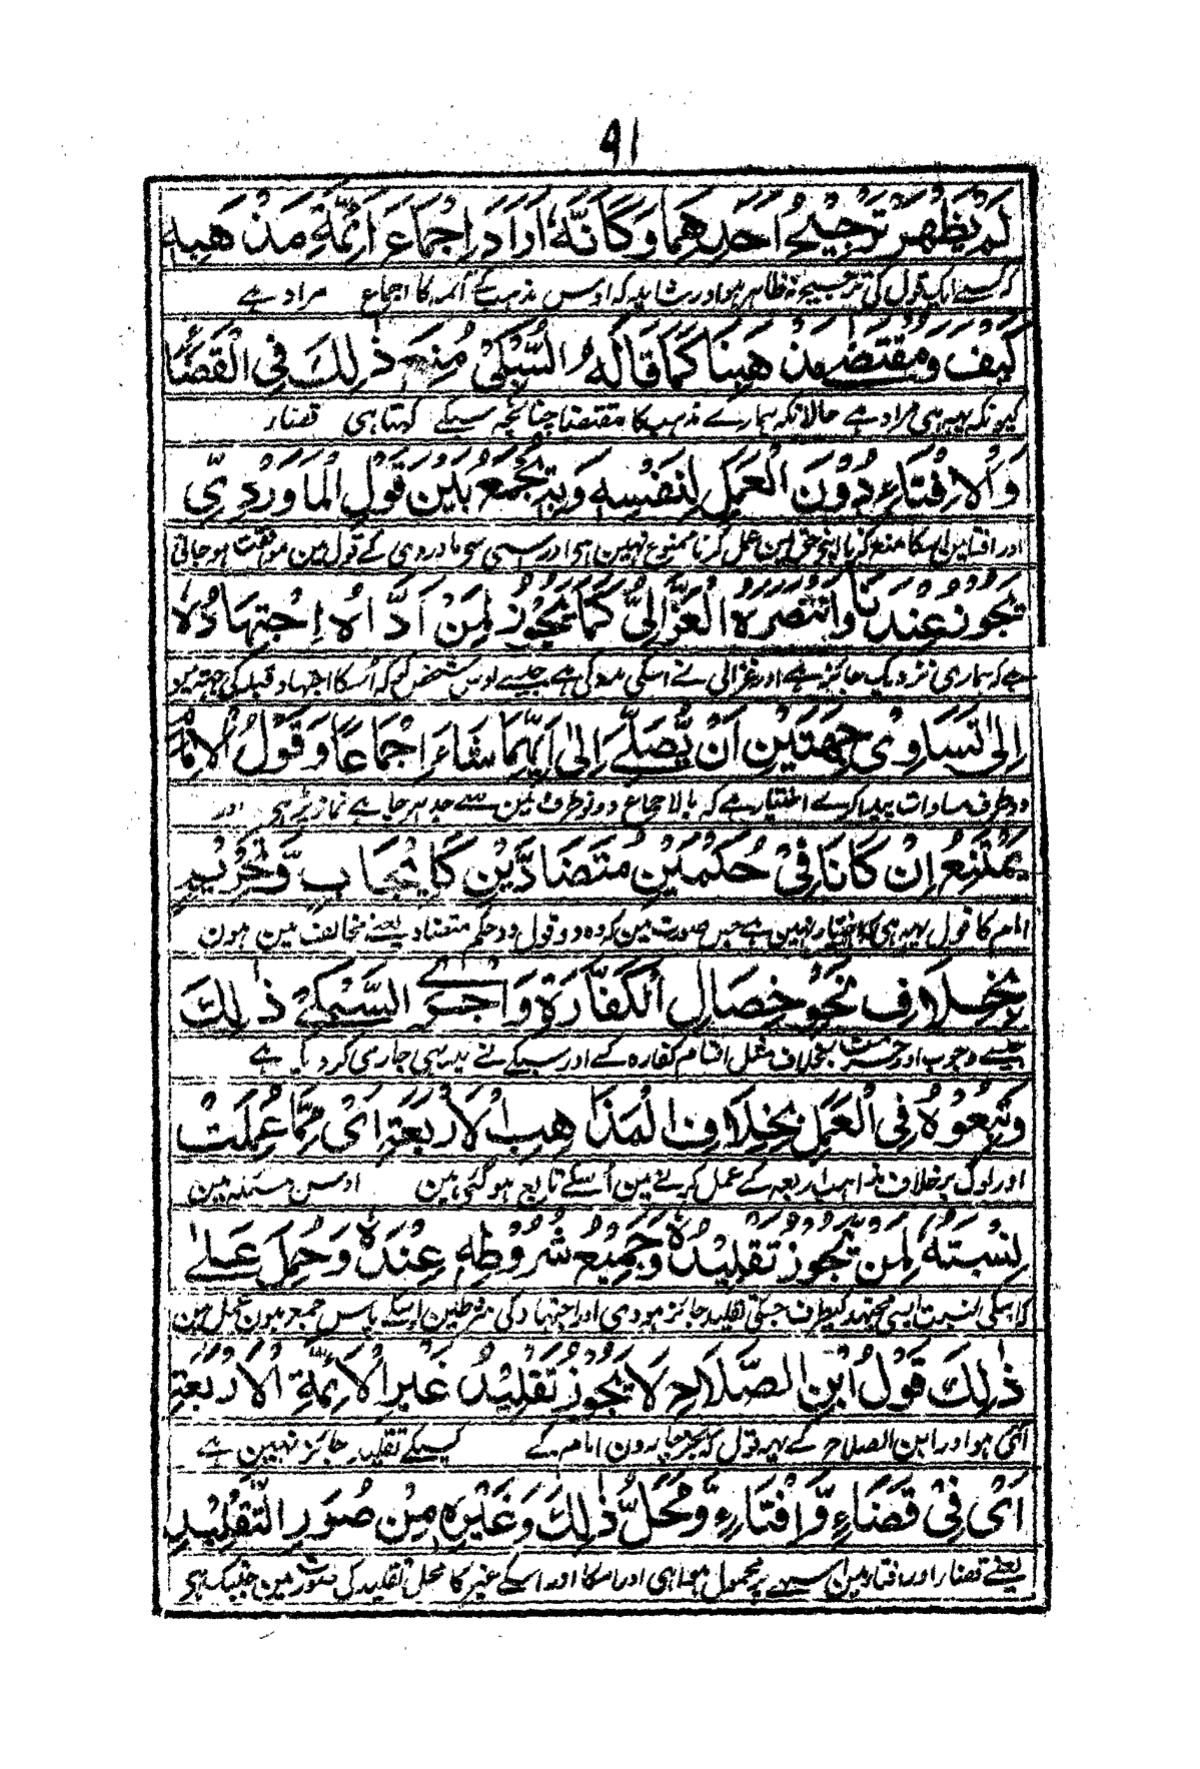 ٩١
لَمْ يَظْهَرْ تَرْجِيْحُ اَحَدِهِمَا وَكَاَنَّهٗ اَرَادَ اِجْمَاعَ اَئِمَّةِ مَذْهَبِهٖ
کہ کسے ایک قول کی ترجیح نہ ظاہر ہو اور شاید کہ اوس مذہب کے ائمہ کا اجماع مراد ہے
كَيْفَ وَمُقْتَضٰى مَذْهَبِنَا كَمَا قَالَهُ السُّبْكِيُّ مُنِعَ ذٰلِكَ فِي الْقَضَاءِ
کیونکہ یہہ ہی مراد ہے حالانکہ ہمارے مذہب کا مقتضا چنانچہ سبکے کہتا ہی قضاء
وَالْاِفْتَاءِ دُوْنَ الْعَمَلِ لِنَفْسِهٖ وَبِهٖ يُجْمَعُ بَيْنَ قَوْلِ الْمَاوَرْدِيِّ
اور افتا مین اسکا منع کرنا اپنے حق مین عمل کرنا ممنوع نہین ہی اور اسی سی ماوردی کے قول مین موافقت ہو جاتی
يَجُوْزُ عِنْدَنَا وَانْتَصَرَهُ الْغَزَّالِيُّ كَمَا يَجُوْزُ لِمَنْ اَدَّاهُ اِجْتِهَادُهٗ
ہے کہ ہماری نزدیک جائز ہے اور غزالی نے اسکی مدد کی ہے جیسے اوس شخص کو کہ اُسکا اجتہاد قبلہ کی جہة مین
اِلٰى تَسَاوِيْ جِهَتَيْنِ اَنْ يُّصَلِّيَ اِلٰى اَيِّهِمَا شَاءَ اِجْمَاعًا وَقَوْلُ الْاِمَامِ
دو طرف مساوات پیدا کرے اختیار ہے کہ بالاجماع دونو طرف مین سے جدہر چاہے نماز پڑہی اور
يَمْتَنِعُ اِنْ كَانَا فِيْ حُكْمَيْنِ مُتَضَادَّيْنِ كَاِيْجَابٍ وَّتَحْرِيْمٍ
امام کا قول یہہ ہی کہ اختیار نہین ہے جس صورت مین کہ وہ دو قول دو حکم متضاد یعنے مخالف مین ہون
بِخِلَافِ نَحْوِ خِصَالِ الْكَفَّارَةِ وَاَجْرَى السُّبْكِيُّ ذٰلِكَ
جیسے وجوب اور حرمت بخلاف مثل اقسام کفارہ کے اور سبکے نے یہہ ہی جاری کر دیا ہے
وَتَبِعُوْهُ فِي الْعَمَلِ بِخِلَافِ الْمَذَاهِبِ الْاَرْبَعَةِ اَيْ مِمَّا عُمِلَتْ
اور لوگ برخلاف مذاہب اربعہ کے عمل کرنے مین اُسکے تابع ہو گئی ہین اوس مسئلہ مین
نِسْبَتُهٗ لِمَنْ يَّجُوْزُ تَقْلِيْدُهٗ وَجَمِيْعُ شُرُوْطِهٖ عِنْدَهٗ وَحُمِلَ عَلٰى
کہ اسکی نسبت ایسی مجتہد کیطرف جسکی تقلید جائز ہو دی اور اجتہاد کی شرطین اسکے پاس جمع ہون عمل مین
ذٰلِكَ قَوْلُ ابْنِ الصَّلَاحِ لَا يَجُوْزُ تَقْلِيْدُ غَيْرِ الْاَئِمَّةِ الْاَرْبَعَةِ
آئی ہو اور ابن الصلاح کے یہہ قول کہ بجز چارون امام کے کسیکے تقلید جائز نہین ہے
اَيْ فِيْ قَضَاءٍ وَّاِفْتَاءٍ وَّمَحَلُّ ذٰلِكَ وَغَيْرِهٖ مِنْ صُوَرِ التَّقْلِيْدِ
یعنے قضاء اور افتا مین اسیہے پر محمول ہوا ہی اور اسکا اور اسکے غیر کا محل تقلید کی صورت مین جبتک ہی